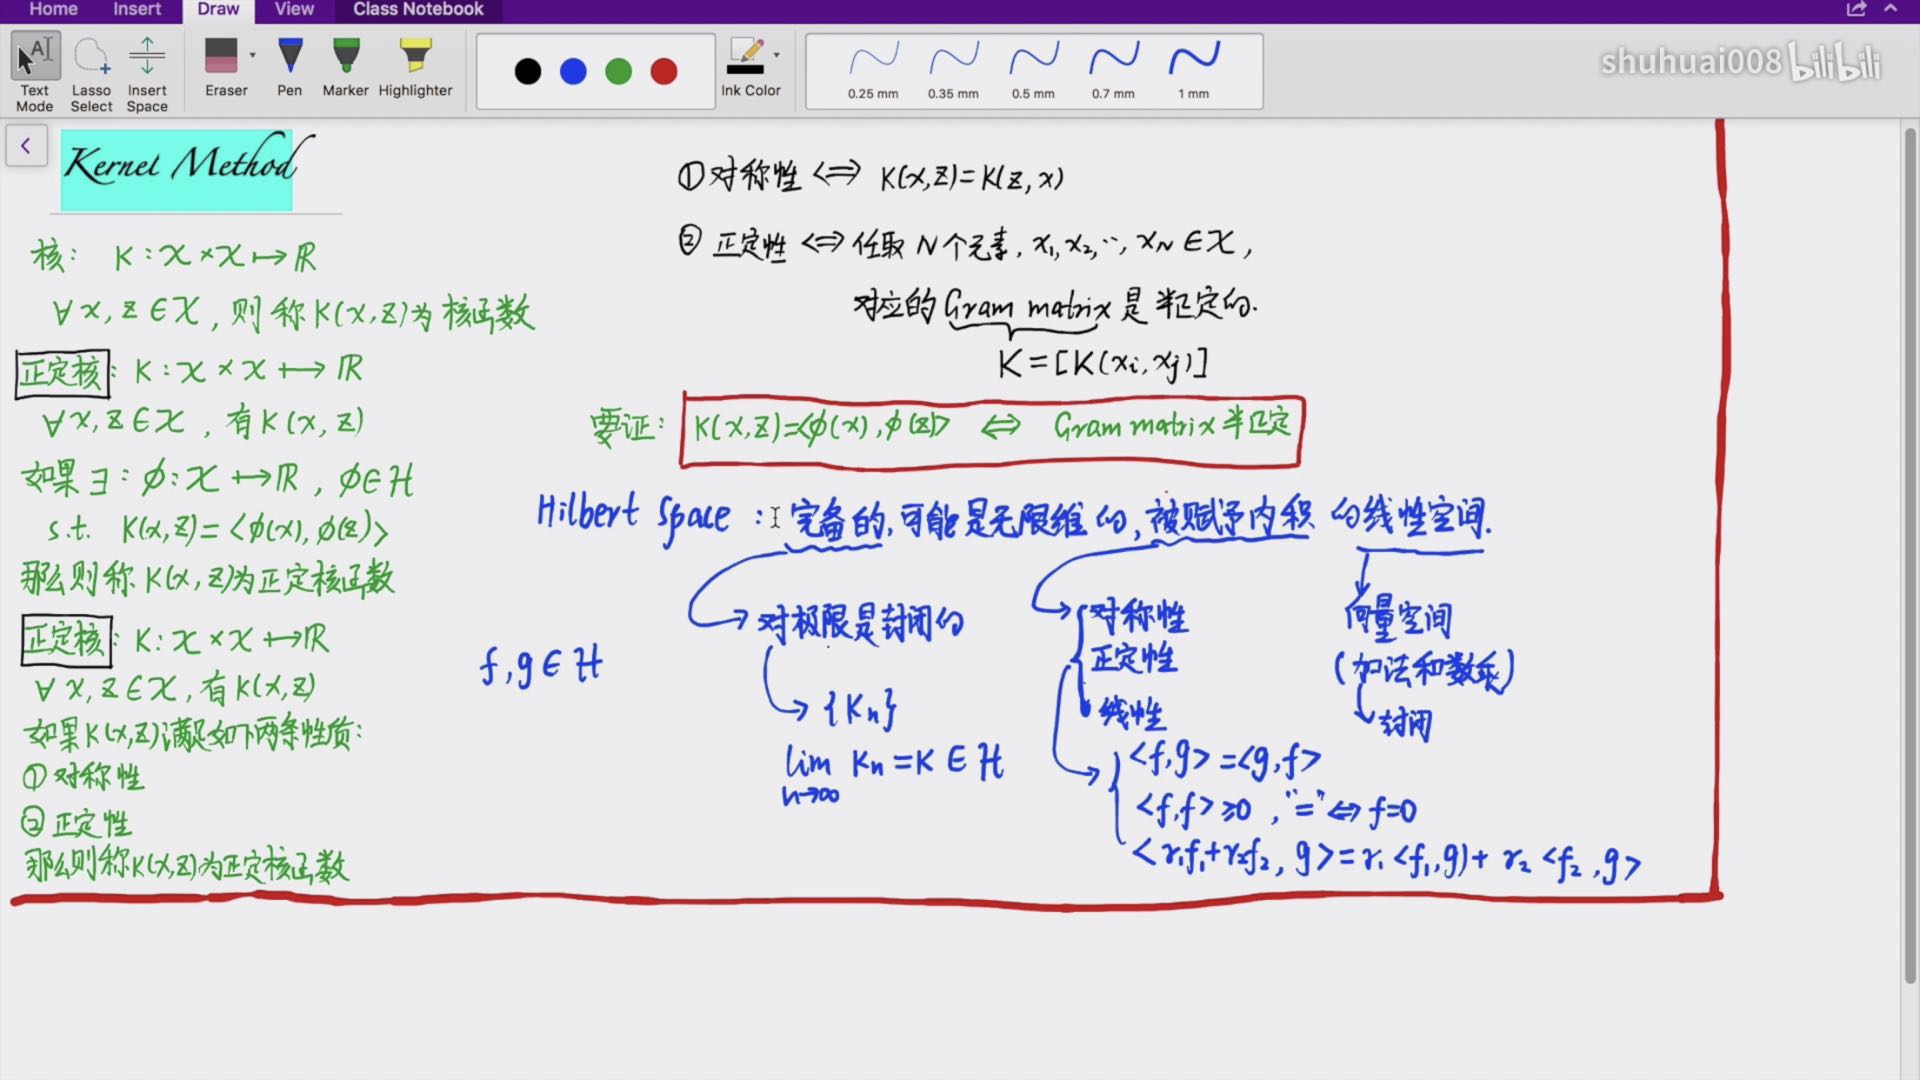 Home Insert Draw View Class Notebook
Text Mode
Lasso Select
Insert Space
Eraser
Pen
Marker
Highlighter
Ink Color
0.25 mm
0.35 mm
0.5 mm
0.7 mm
1 mm
shuhuai008 bilibili
Kernel Method
核: K:𝒳×𝒳↦ℝ
∀x,z∈𝒳,则称K(x,z)为核函数
正定核: K:𝒳×𝒳↦ℝ
∀x,z∈𝒳,有K(x,z)
如果∃:ϕ:𝒳↦ℝ,ϕ∈ℋ
s.t. K(x,z)=<ϕ(x),ϕ(z)>
那么则称K(x,z)为正定核函数
正定核: K:𝒳×𝒳↦ℝ
∀x,z∈𝒳,有K(x,z)
如果K(x,z)满足如下两条性质:
①对称性
②正定性
那么则称K(x,z)为正定核函数
①对称性⇔K(x,z)=K(z,x)
②正定性⇔任取N个元素,x₁,x₂,…,x_N∈𝒳,
对应的Gram matrix是半正定的.
K=[K(xᵢ,xⱼ)]
要证: K(x,z)=<ϕ(x),ϕ(z)> ⇔ Gram matrix半正定
Hilbert Space:完备的,可能是无限维的,被赋予内积的线性空间.
对极限是封闭的
{Kₙ}
lim n→∞ Kₙ=K∈ℋ
f,g∈ℋ
对称性
正定性
线性
<f,g>=<g,f>
<f,f>≥0,"="⇔f=0
<r₁f₁+r₂f₂,g>=r₁<f₁,g)+r₂<f₂,g>
向量空间
(加法和数乘)
封闭